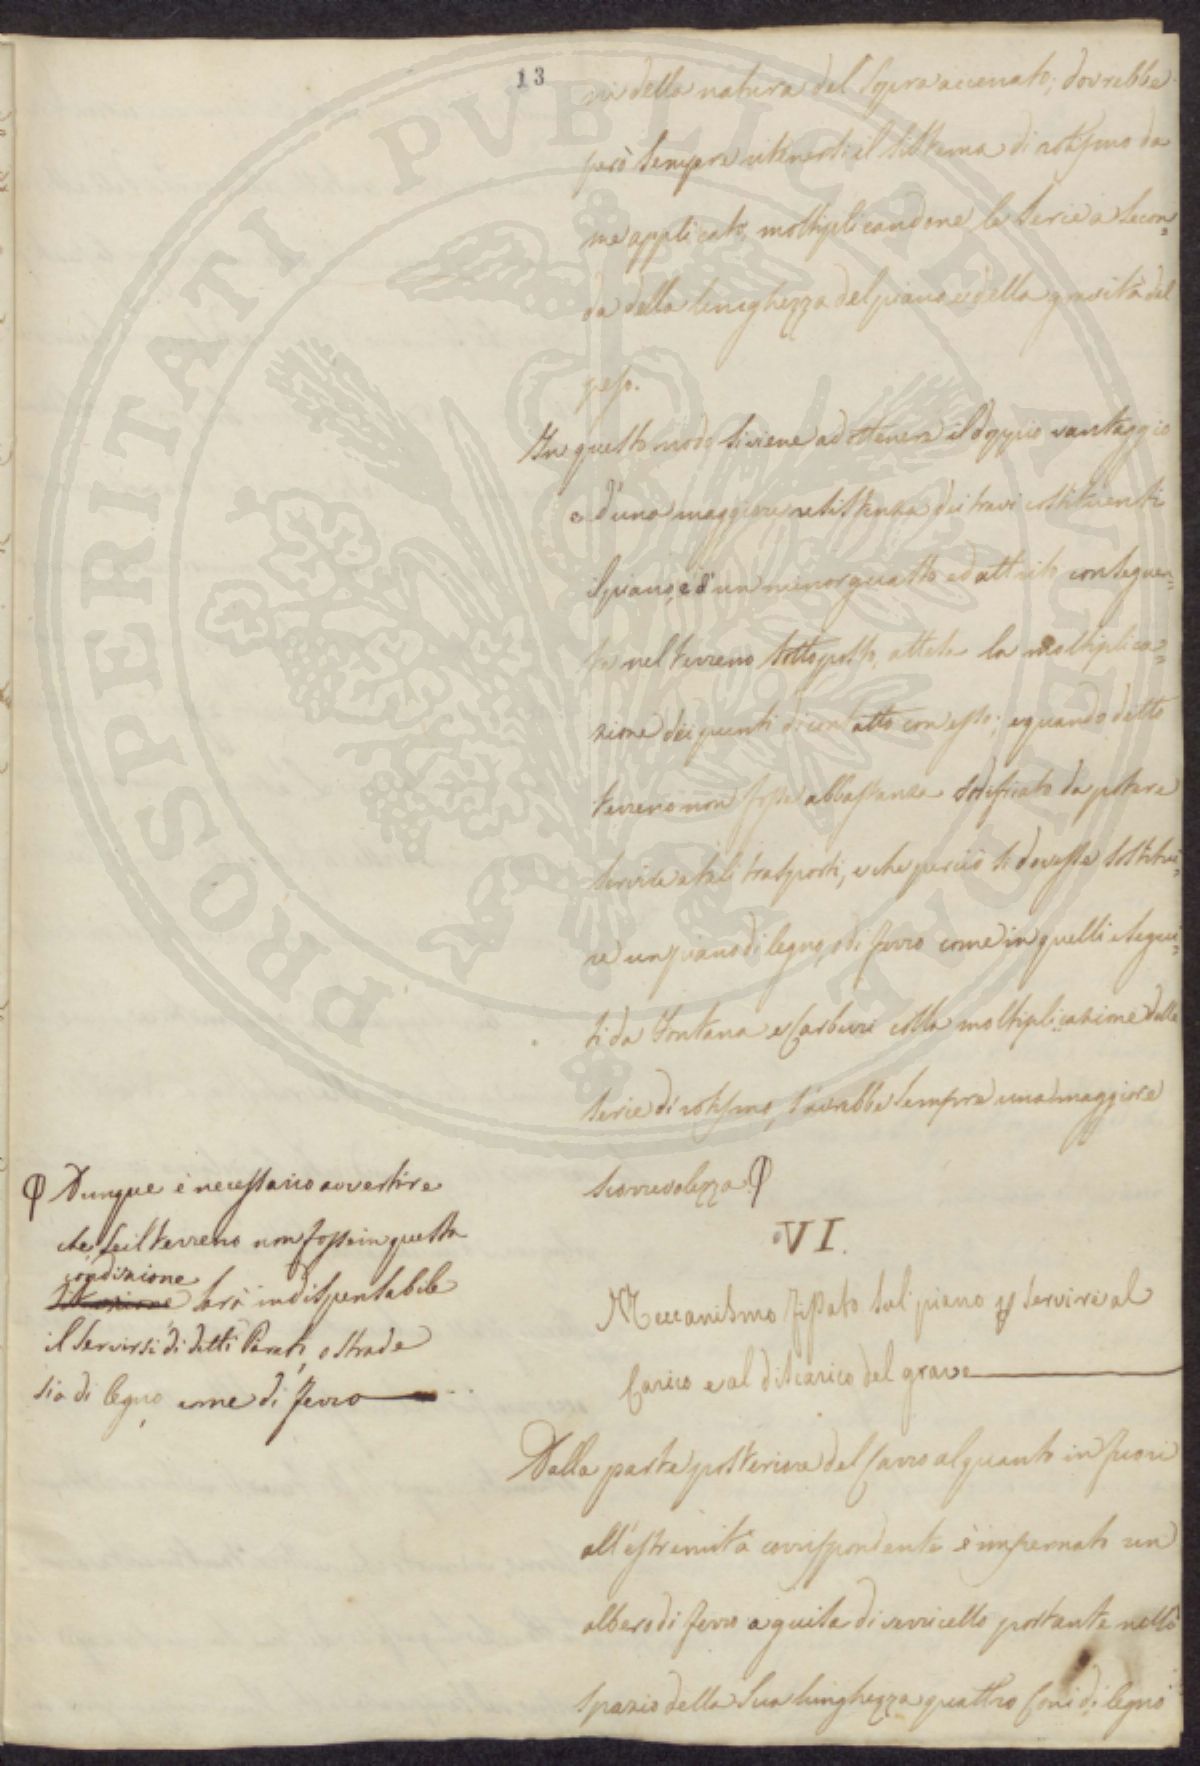 13
ni della natura del sopra accenato; dovrebbe
però sempre ritenersi il sistema di rotismo da
me applicato, moltiplicandone le serie a secon=
da della lunghezza del piano, e della gravità del
peso.
In questo modo si viene ad ottenere il doppio vantaggio
d'una maggiore resistenza dei travi costituenti
il piano, e d'un minor guasto ed attrito conseguen=
te nel terreno sottoposto, attesa la moltiplica=
zione dei punti di contatto con esso; e quando detto
terreno non fosse abbastanza sodificato da potere
servire a tali trasporti, e che perciò si dovesse sostitui=
re un piano di legno, o di ferro come in quelli esegui=
ti da Fontana e Carburi colla moltiplicazione delle
serie di rotismo, s'avrebbe sempre una maggiore
scorrevolezza. φ
φ Dunque è necessario avvertire
che se il terreno non fosse in questa
condizione
sarà indispensabile
il servirsi di detti Parati, o strade
sia di legno, come di ferro
VI.
Meccanismo fissato sul piano p servire al
Carico e al discarico del grave
Dalla parte posteriore del Carro alquanto in fuori
all'estremità corrispondente è impernato un
albero di ferro a guisa di verricello portante nello
spazio della sua lunghezza quattro Coni di legno
PROSPERITATI PVBLICAE AVGENDAE